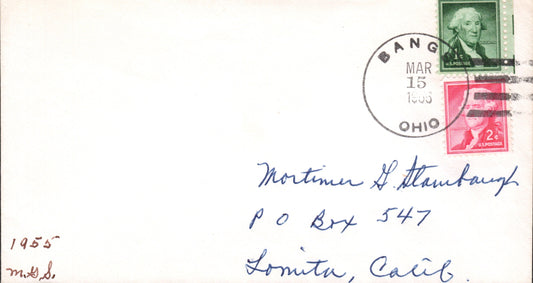 1¢
U.S. POSTAGE
BANGS
MAR
15
1966
OHIO
2¢
U.S. POSTAGE
Mortimer G. Stambaugh
P O Box 547
Lomita, Calif.
1955
M.G.S.